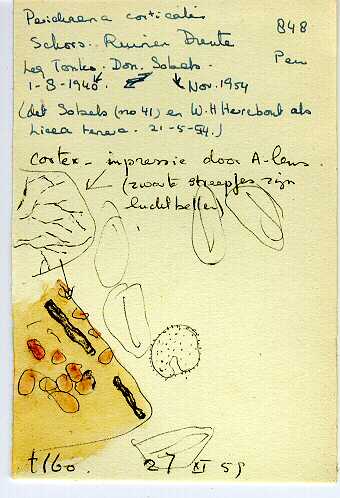 Perichaena corticalis
848
Schors. Ruinen Drente
Pen
Leg Tonko. Don. Sobels
1-8-1940. Nov. 1954
(det Sobels (no 41) en W.H. Herebout als
Licea tenera. 21-5-54.)
Cortex - impressie door A-lens.
(zwarte streepjes zijn
luchtbellen)
†160. 27 XI 59